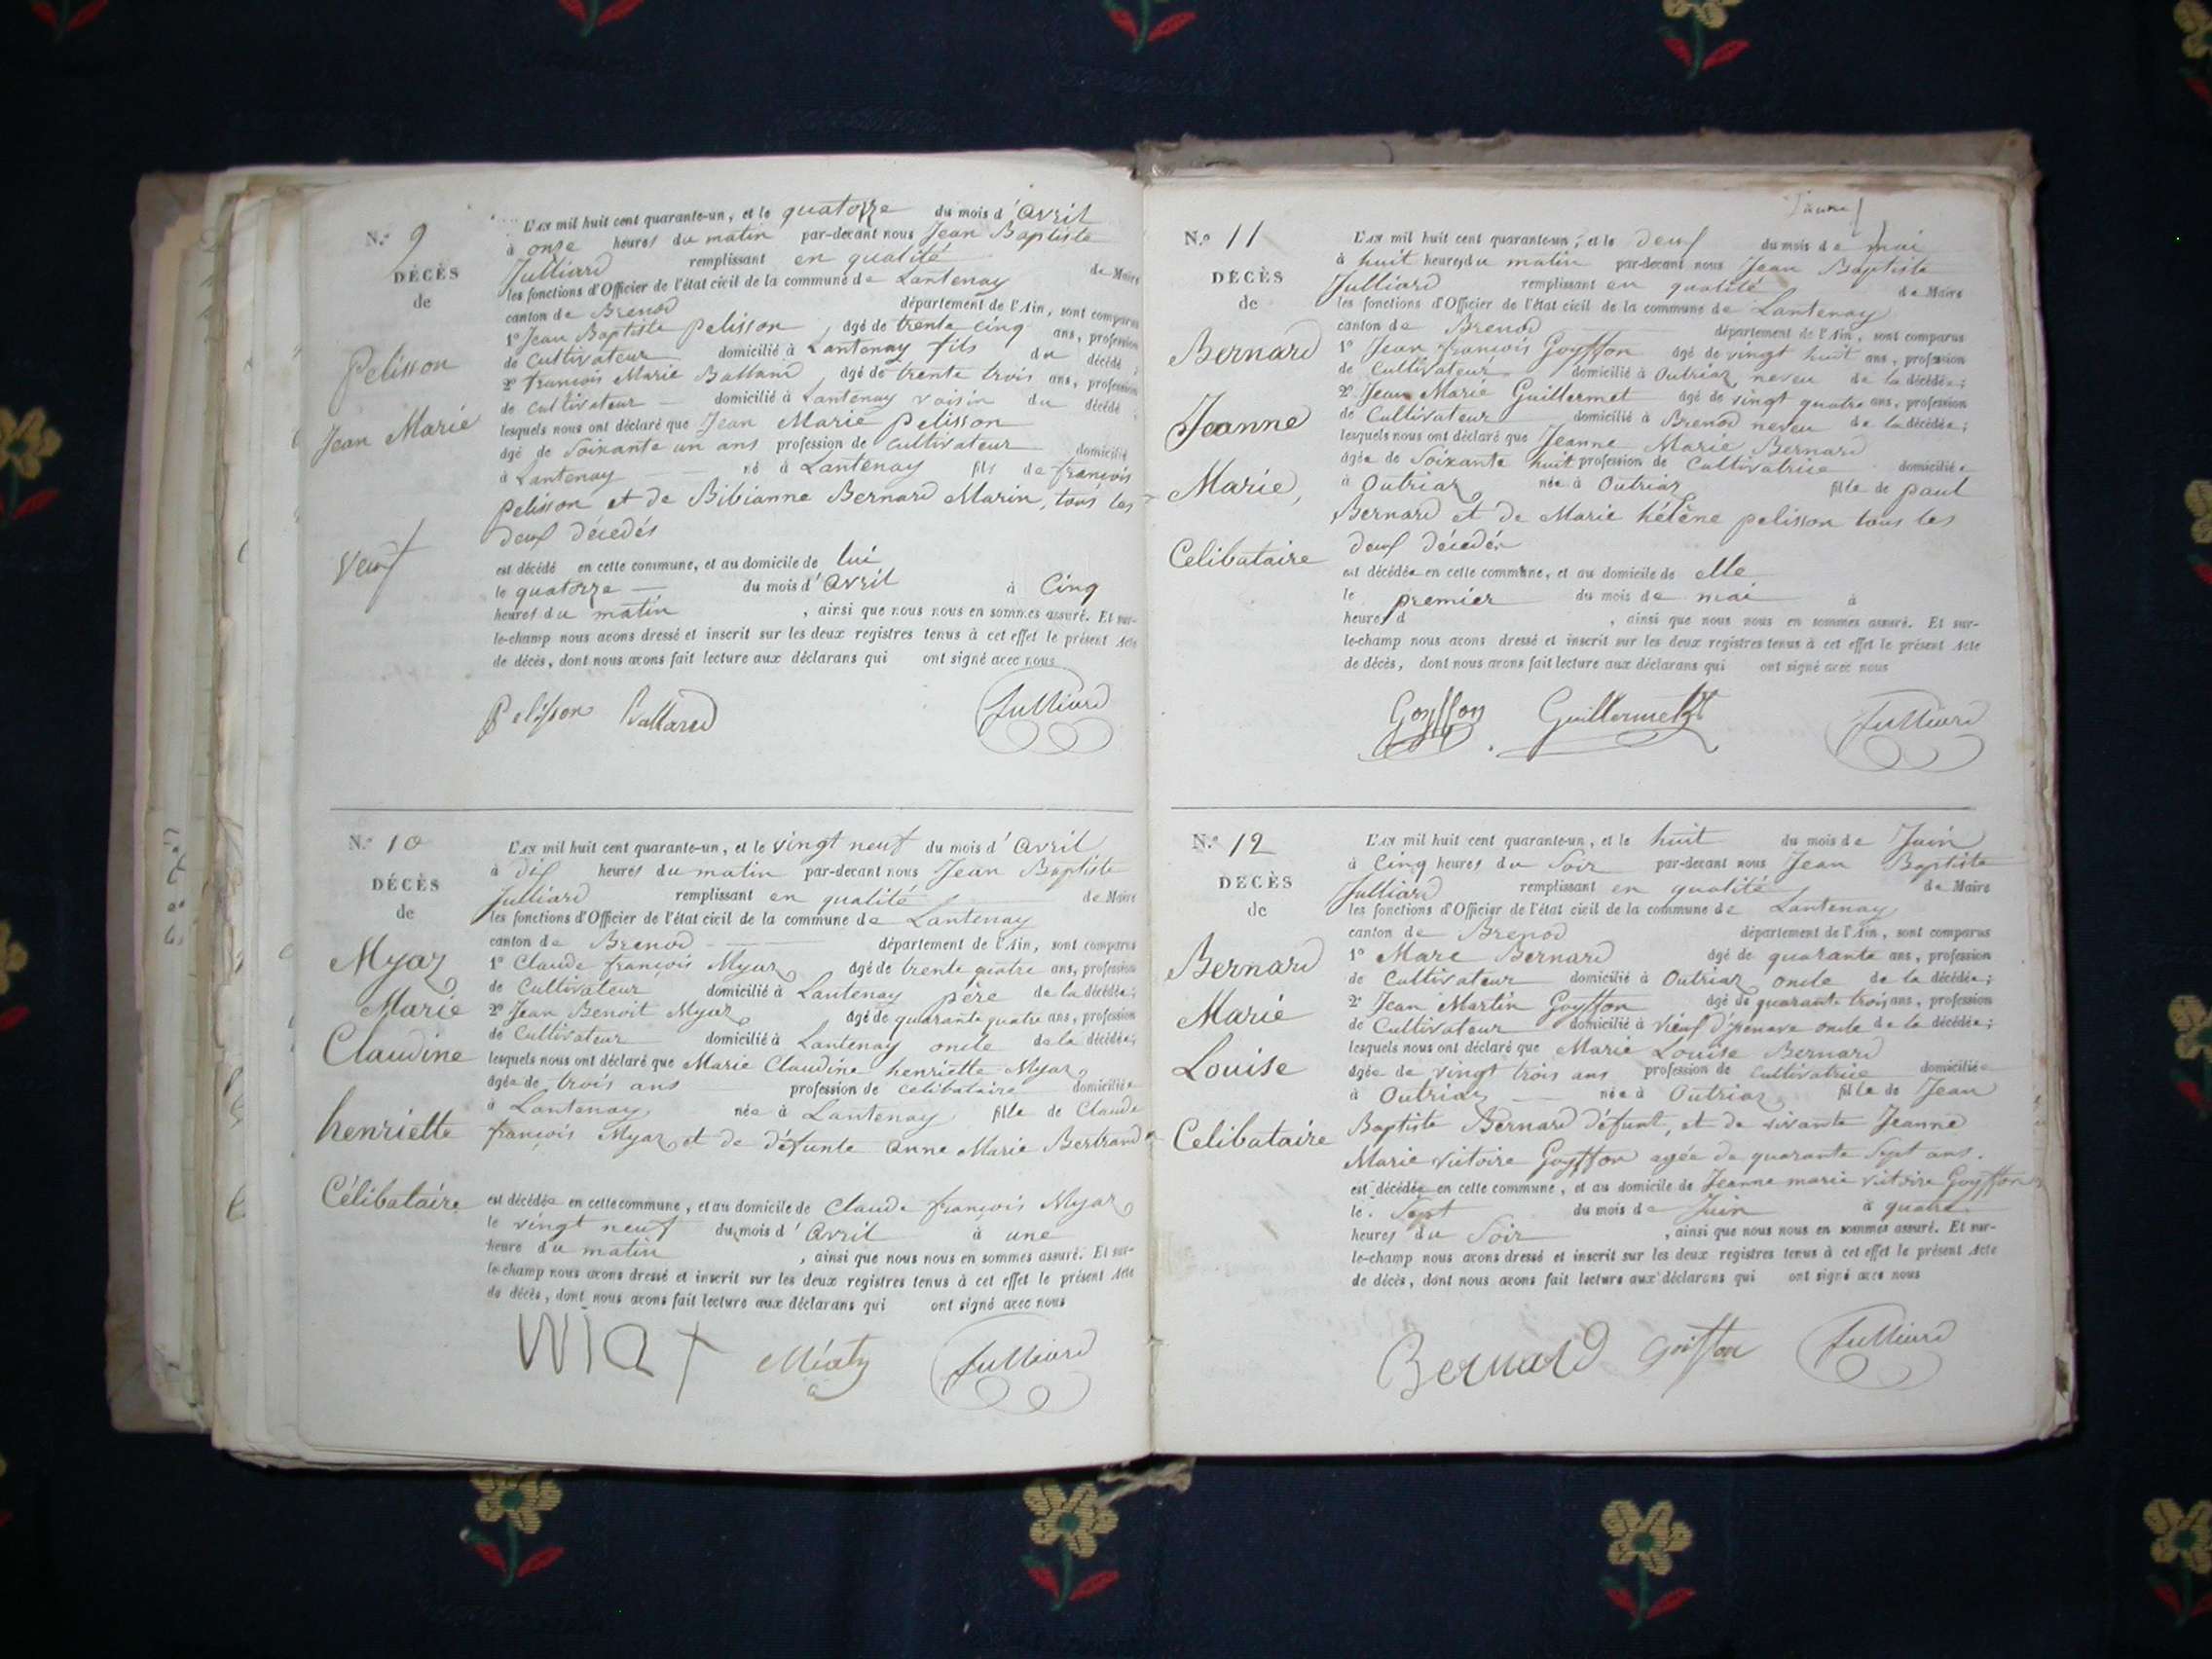 N.º 9
DÉCÈS
de
Pelisson
Jean Marie
Veuf
L'AN mil huit cent quarante-un, et le quatorze du mois d'avril
à onze heures du matin par-devant nous Jean Baptiste
Julliard remplissant en qualité de Maire
les fonctions d'Officier de l'état civil de la commune de Lantenay
canton de Brenod département de l'Ain, sont comparus
1º Jean Baptiste pelisson, âgé de trente cinq ans, profession
de Cultivateur domicilié à Lantenay fils du décédé;
2º françois Marie Balland âgé de trente trois ans, profession
de cultivateur domicilié à Lantenay voisin du décédé;
lesquels nous ont déclaré que Jean Marie pelisson
âgé de Soixante un ans profession de cultivateur domicilié
à Lantenay né à Lantenay fils de françois
pelisson et de Bibianne Bernard Marin, tous les
deux décedés
est décédé en cette commune, et au domicile de lui
le quatorze du mois d'avril à Cinq
heures du matin, ainsi que nous nous en sommes assuré. Et sur-
le-champ nous avons dressé et inscrit sur les deux registres tenus à cet effet le présent Acte
de décès, dont nous avons fait lecture aux déclarans qui ont signé avec nous
Pelisson Balland Julliard
N.º 10
DÉCÈS
de
Myaz
Marie
Claudine
henriette
Célibataire
L'AN mil huit cent quarante-un, et le vingt neuf du mois d'avril
à dix heures du matin par-devant nous Jean Baptiste
Julliard remplissant en qualité de Maire
les fonctions d'Officier de l'état civil de la commune de Lantenay
canton de Brenod département de l'Ain, sont comparus
1º Claude françois Myaz âgé de trente quatre ans, profession
de Cultivateur domicilié à Lantenay père de la décédée;
2º Jean Benoit Myaz âgé de quarante quatre ans, profession
de Cultivateur domicilié à Lantenay oncle de la décédée;
lesquels nous ont déclaré que Marie Claudine henriette Myaz
âgée de trois ans profession de célibataire domiciliée
à Lantenay née à Lantenay fille de Claude
françois Myaz et de défunte anne Marie Bertrand
est décédée en cette commune, et au domicile de Claude françois Myaz
le vingt neuf du mois d'avril à une
heure du matin, ainsi que nous nous en sommes assuré. Et sur-
le-champ nous avons dressé et inscrit sur les deux registres tenus à cet effet le présent Acte
de décès, dont nous avons fait lecture aux déclarans qui ont signé avec nous
Julliard
N.º 11
DÉCÈS
de
Bernard
Jeanne
Marie,
Celibataire
L'AN mil huit cent quarante-un, et le deux du mois de mai
à huit heures du matin par-devant nous Jean Baptiste
Julliard remplissant en qualité de Maire
les fonctions d'Officier de l'état civil de la commune de Lantenay
canton de Brenod département de l'Ain, sont comparus
1º Jean françois Goyffon âgé de vingt huit ans, profession
de Cultivateur domicilié à Outriaz neveu de la décédée;
2º Jean Marie Guillermet âgé de vingt quatre ans, profession
de Cultivateur domicilié à Brenod neveu de la décédée;
lesquels nous ont déclaré que Jeanne Marie Bernard
âgée de Soixante huit profession de Cultivatrice domiciliée
à Outriaz née à Outriaz fille de paul
Bernard et de Marie hélène pelisson tous les
deux décedés
est décédée en cette commune, et au domicile de elle
le premier du mois de mai à
heures d, ainsi que nous nous en sommes assuré. Et sur-
le-champ nous avons dressé et inscrit sur les deux registres tenus à cet effet le présent Acte
de décès, dont nous avons fait lecture aux déclarans qui ont signé avec nous
Goyffon Guillermet Julliard
N.º 12
DÉCÈS
de
Bernard
Marie
Louise
Celibataire
L'AN mil huit cent quarante-un, et le huit du mois de Juin
à Cinq heures du Soir par-devant nous Jean Baptiste
Julliard remplissant en qualité de Maire
les fonctions d'Officier de l'état civil de la commune de Lantenay
canton de Brenod département de l'Ain, sont comparus
1º Marc Bernard âgé de quarante ans, profession
de Cultivateur domicilié à Outriaz oncle de la décédée;
2º Jean Martin Goyffon âgé de quarante trois ans, profession
de Cultivateur domicilié à vieux d'izenave oncle de la décédée;
lesquels nous ont déclaré que Marie Louise Bernard
âgée de vingt trois ans profession de Cultivatrice domiciliée
à Outriaz née à Outriaz fille de Jean
Baptiste Bernard défunt, et de vivante Jeanne
Marie victoire Goyffon agée de quarante Sept ans.
est décédée en cette commune, et au domicile de Jeanne marie victoire Goyffon
le Sept du mois de Juin à quatre
heures du Soir, ainsi que nous nous en sommes assuré. Et sur-
le-champ nous avons dressé et inscrit sur les deux registres tenus à cet effet le présent Acte
de décès, dont nous avons fait lecture aux déclarans qui ont signé avec nous
Bernard Goiffon Julliard